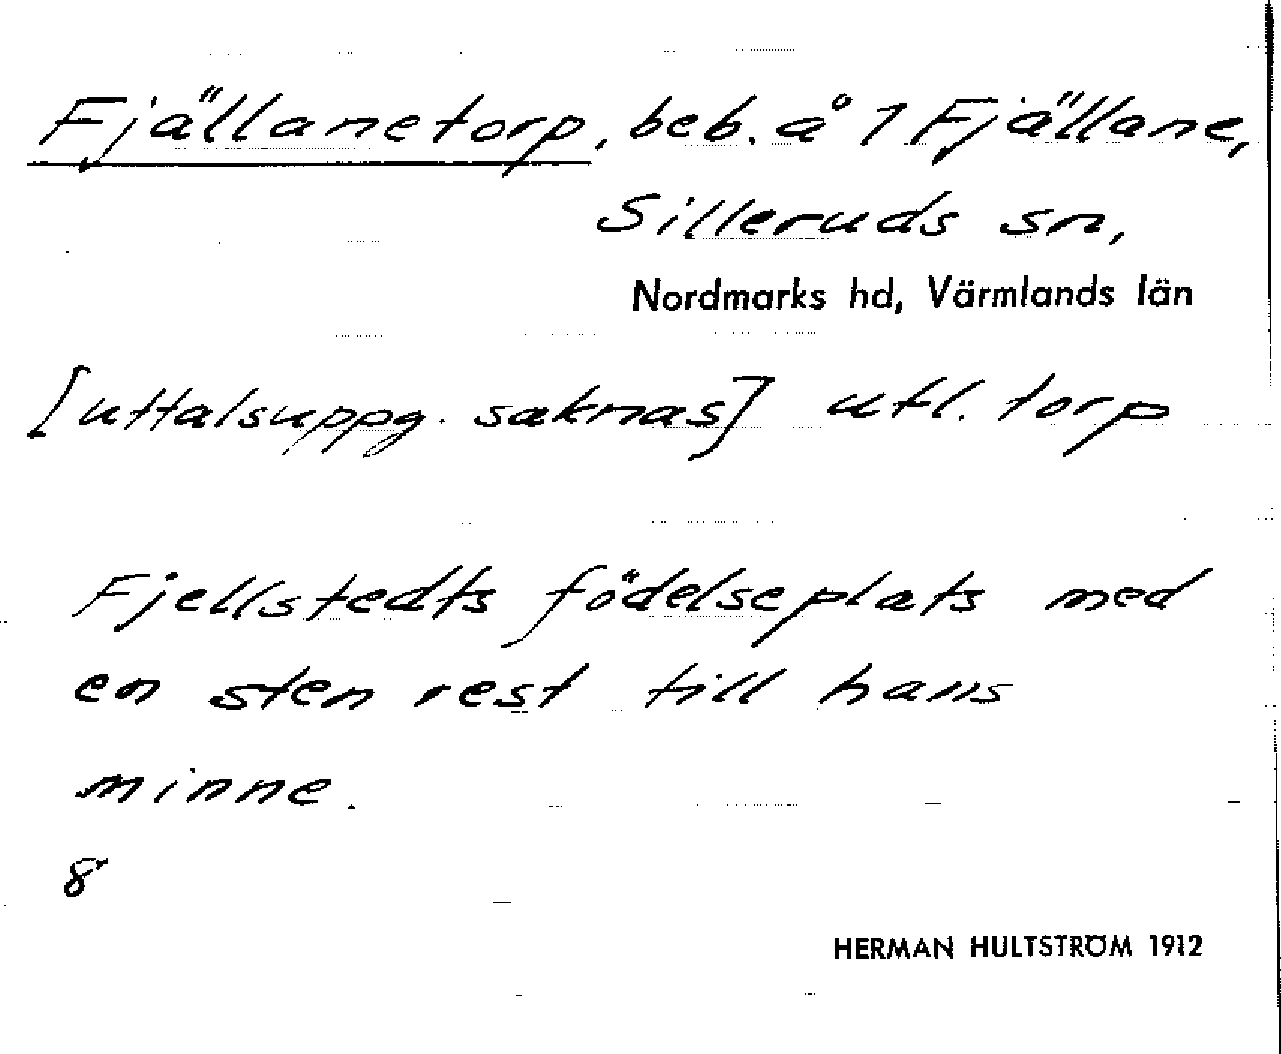 Fjällanetorp, beb. å 1 Fjällane,
Silleruds sn,
Nordmarks hd, Värmlands län
[uttalsuppg. saknas] utfl. torp
Fjellstedts födelseplats med
en sten rest till hans
minne.
8
HERMAN HULTSTRÖM 1912